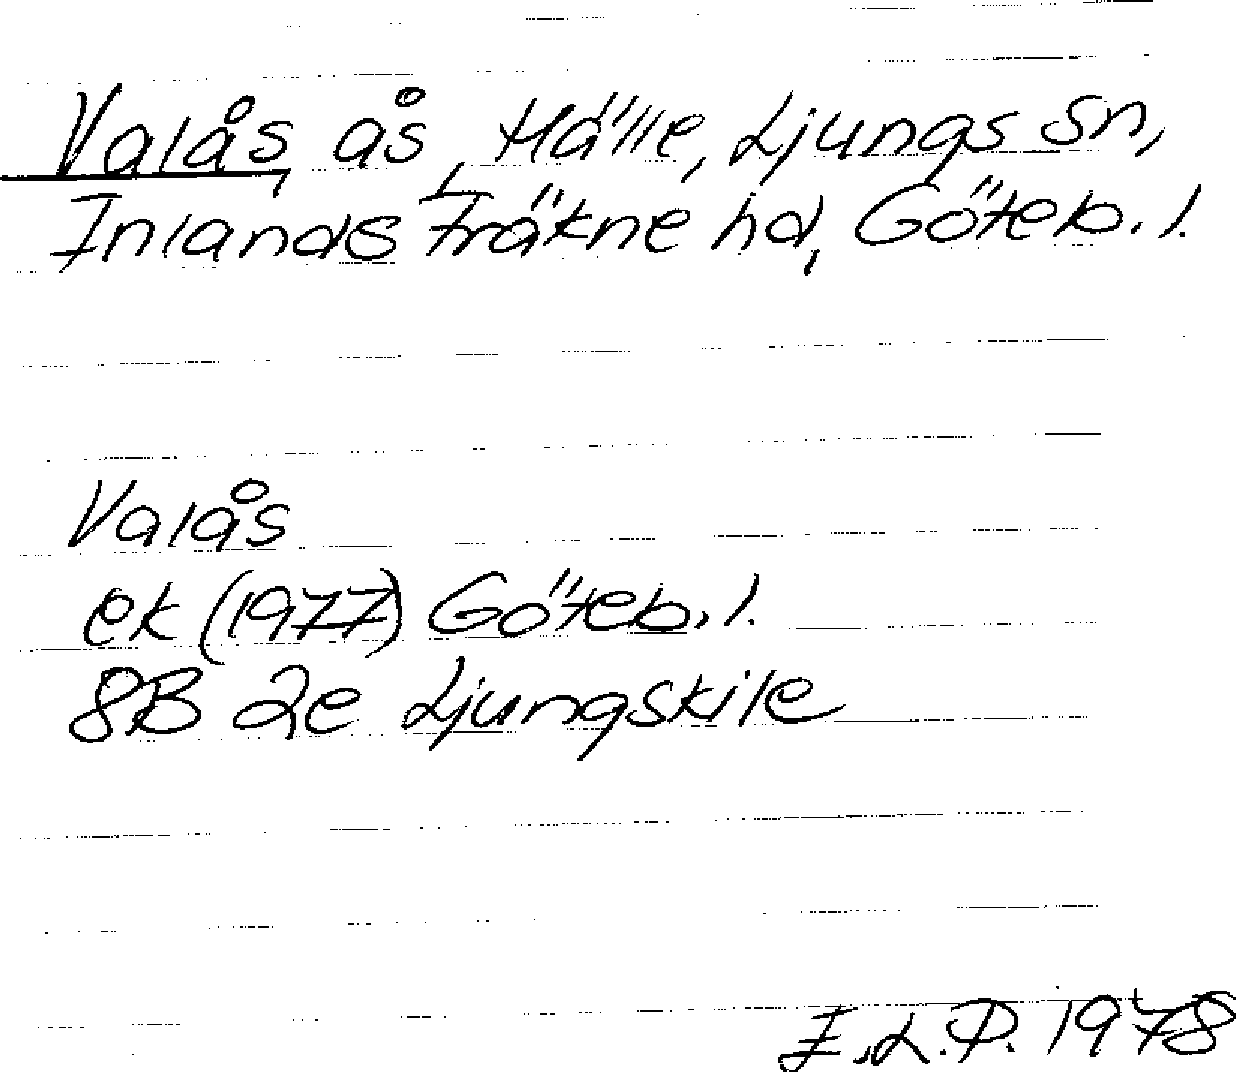 Valås, ås, Hälle, Ljungs sn,
Inlands Fräkne hd, Göteb. l.
Valås
ek (1977) Göteb. l.
8B 2e Ljungskile
I.L.P. 1978